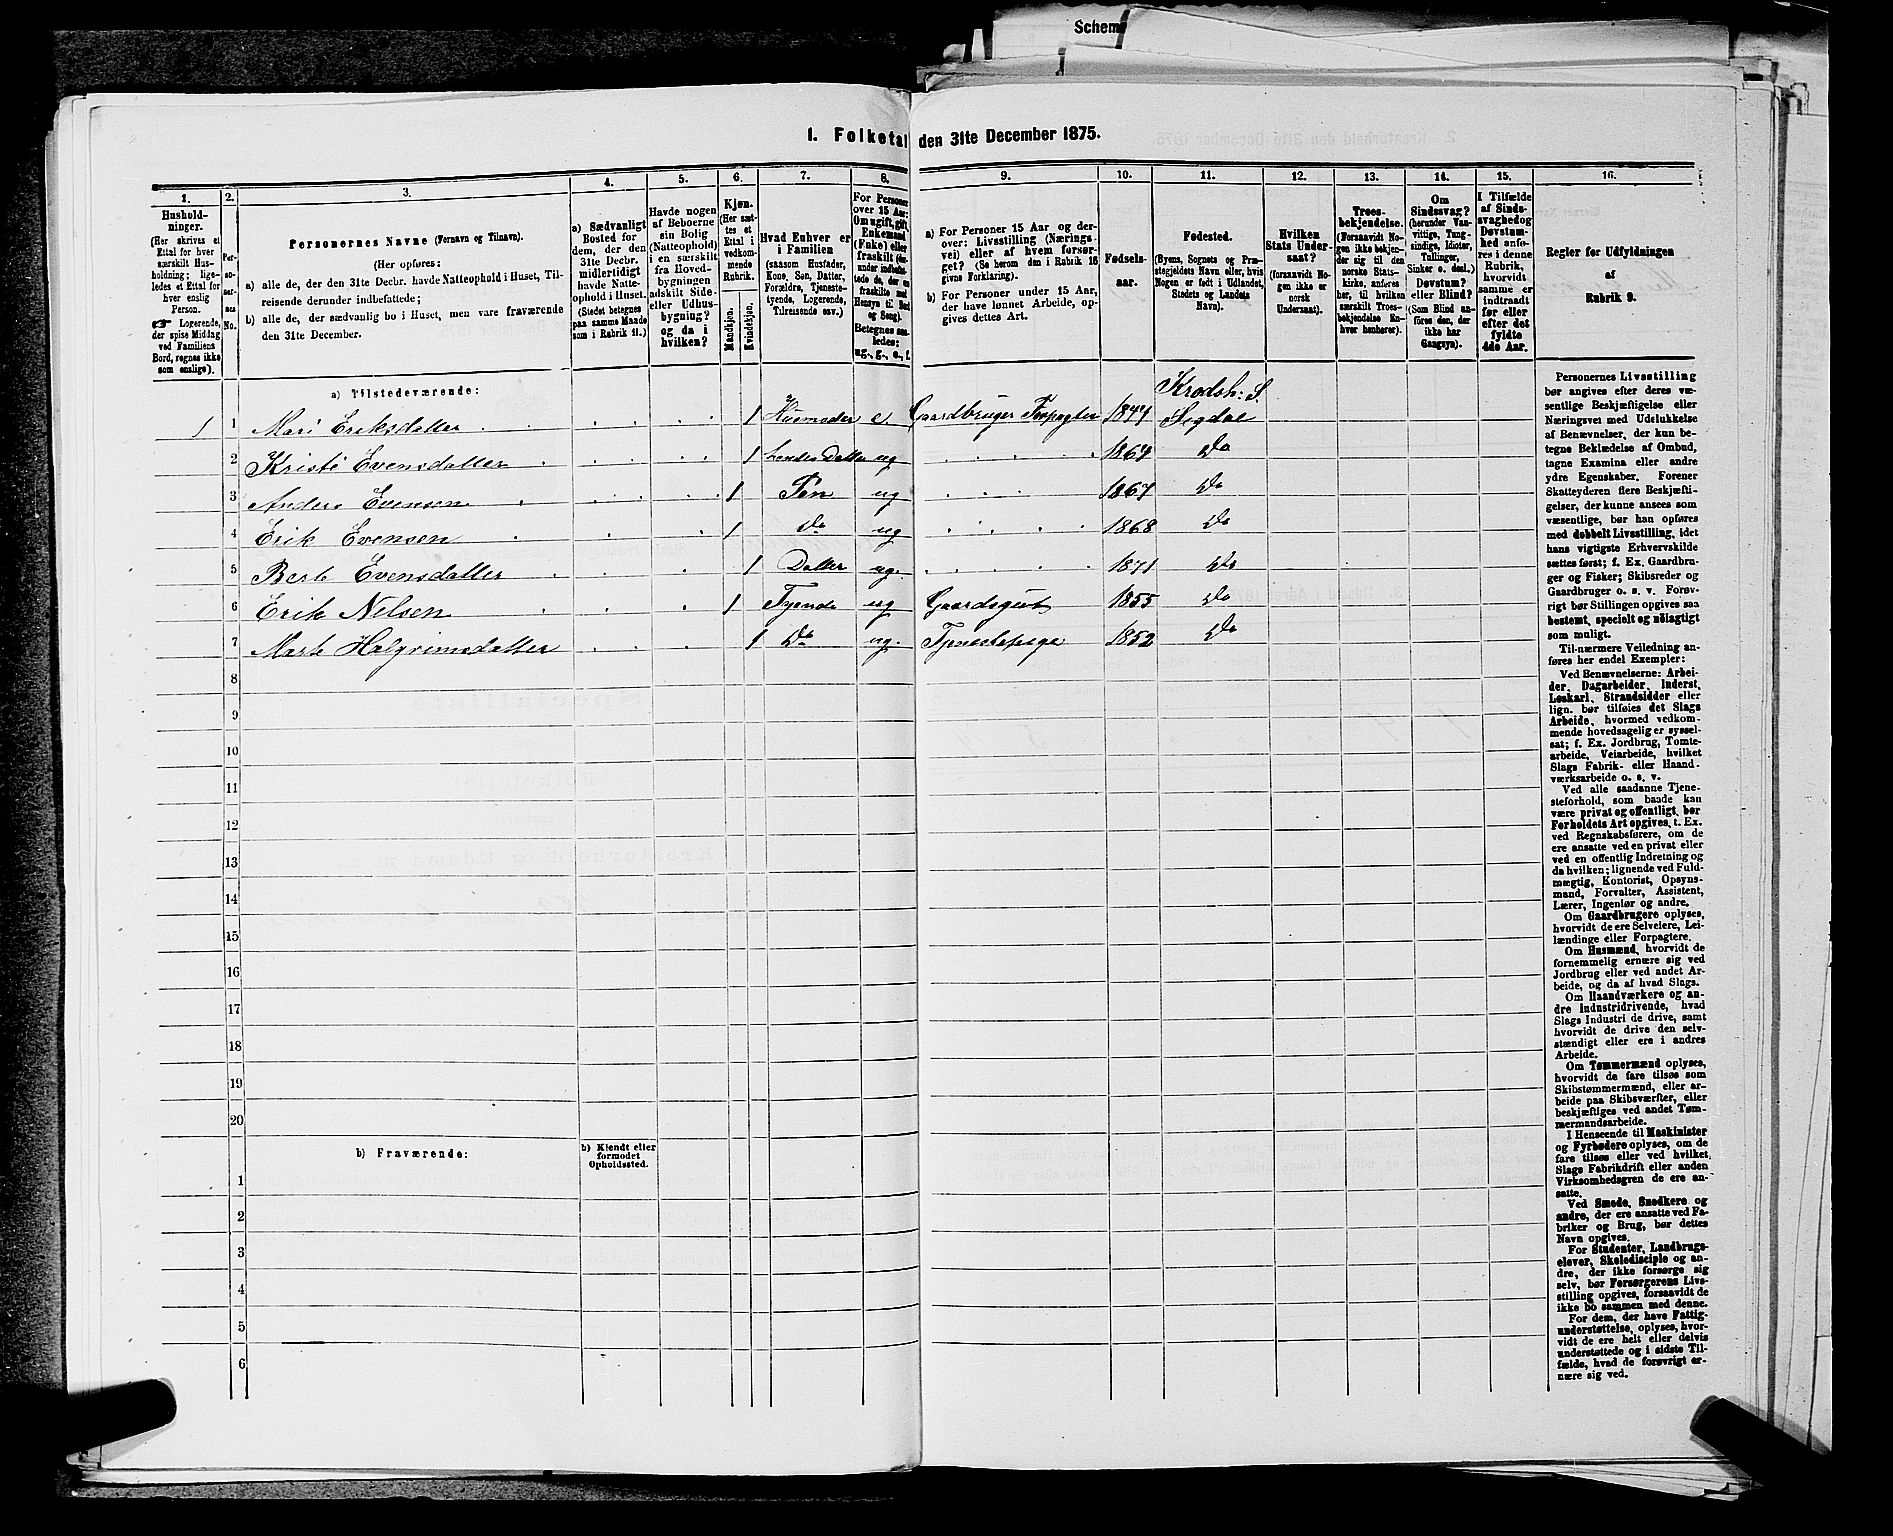 Schem
1. Folketal den 31te December 1875.
1. 2. 3. 4. 5. 6. 7. 8. 9. 10. 11. 12. 13. 14. 15. 16.
Hushold-
ninger.
(Her skrives et
Ettal for hver
særskilt Hus-
holdning; lige-
ledes et Ettal for
hver enslig
Person.
☞ Logerende,
der spise Middag
ved Familiens
Bord, regnes ikke
som enslige).
Per-
so-
ner-
nes
No.
Personernes Navne (Fornavn og Tilnavn).
(Her opføres:
a) alle de, der den 31te Decbr. havde Natteophold i Huset, Til-
reisende derunder indbefattede;
b) alle de, der sædvanlig bo i Huset, men vare fraværende
den 31te December.
a) Sædvanligt
Bosted for
dem, der den
31te Decbr.
midlertidigt
havde Natte-
ophold i Huset.
(Stedet betegnes
paa samme Maade
som i Rubrik 11.)
Havde nogen
af Beboerne
sin Bolig
(Natteophold)
i en særskilt
fra Hoved-
bygningen
adskilt Side-
eller Udhus-
bygning?
og da i
hvilken?
Kjøn.
(Her sæt-
tes et
Ettal i
vedkom-
mende
Rubrik.
Mandkjøn.
Kvindekjøn.
Hvad Enhver er
i Familien
(saasom Husfader,
Kone, Søn, Datter,
Forældre, Tjeneste-
tyende, Logerende,
Tilreisende osv.)
For Personer
over 15 Aar:
Om ugift, gift,
Enkemand
(Enke) eller
fraskilt
Betegnes saa-
ledes:
ug., g., e., f.
a) For Personer 15 Aar og der-
over: Livsstilling (Nærings-
vei) eller af hvem forsør-
get? (Se herom den i Rubrik 16
givne Forklaring).
b) For Personer under 15 Aar,
der have lønnet Arbeide, op-
gives dettes Art.
Fødsels-
aar.
Fødested.
(Byens, Sognets og Præ-
stegjeldets Navn eller, hvis
Nogen er født i Udlandet,
Stedets og Landets
Navn).
Hvilken
Stats Under-
saat?
(forsaavidt No-
gen ikke er
norsk
Undersaat).
Troes-
bekjendelse.
(Forsaavidt No-
gen ikke bekjen-
der sig til den
norske Stats-
kirke, anføres
her, til hvilken
særskilt Troes-
bekjendelse En-
hver henhører).
Om
Sindssvag?
(herunder Van-
vittige, Tung-
sindige, Idioter,
Tullinger,
Sinker o. desl.)
Døvstum?
eller Blind?
(Som Blind an-
føres den, der
ikke har
Gangsyn).
I Tilfælde
af Sinds-
svaghed og
Døvstum-
hed anfø-
res i denne
Rubrik,
hvorvidt
samme er
indtraadt
før eller
efter det
fyldte
4de Aar.
Regler for Udfyldningen
af
Rubrik 9.
a) Tilstedeværende:
Krødsh: S.
1 1 Mari Eriksdatter 1 Husmoder e. Gaardbruger Forpagter 1841 Sigdal
2 Kristi Evensdatter 1 Datter ug 1869 Do
3 Anders Evensen 1 Søn ug 1867 Do
4 Erik Evensen 1 Do ug 1868 Do
5 Berte Evensdatter 1 Datter ug. 1871 Do
6 Erik Nelsen 1 Tyende ug Gaardsgut 1855 Do
7 Marte Halgrimsdatter 1 Do ug. Tjenestepige 1852 Do
8
9
10
11
12
13
14
15
16
17
18
19
20
b) Fraværende:
b) Kjendt eller
formodet
Opholdssted.
1
2
3
4
5
6
Personernes Livsstilling
bør angives efter deres væ-
sentlige Beskjæftigelse eller
Næringsvei med Udelukkelse
af Benævnelser, der kun be-
tegne Beklædelse af Ombud,
tagne Examina eller andre
ydre Egenskaber. Forener
Skatteyderen flere Beskjæfti-
gelser, der kunne ansees som
væsentlige, bør han opføres
med dobbelt Livsstilling, idet
hans vigtigste Erhvervskilde
sættes først; f. Ex. Gaardbru-
ger og Fisker; Skibsreder og
Gaardbruger o. s. v. Forøv-
rigt bør Stillingen opgives saa
bestemt, specielt og nøiagtigt
som muligt.
Til nærmere Veiledning an-
føres her endel Exempler:
Ved Benævnelserne: Arbei-
der, Dagarbeider, Inderst,
Løskarl, Strandsidder eller
lign. bør tilføies det Slags
Arbeide, hvormed vedkom-
mende hovedsagelig er syssel-
sat; f. Ex. Jordbrug, Tomte-
arbeide, Veiarbeide, hvilket
Slags Fabrik- eller Haand-
værksarbeide o. s. v.
Ved alle saadanne Tjene-
steforhold, som baade kan
være privat og offentligt, bør
Forholdets Art opgives, t. Ex.
ved Regnskabsførere, om de
ere ansatte ved en privat eller
ved en offentlig Indretning og
da hvilken; lignende ved Fuld-
mægtig, Kontorist, Opsyns-
mand, Forvalter, Assistent,
Lærer, Ingeniør og andre.
Om Gaardbrugere oplyses,
hvorvidt de ere Selveiere, Lei-
lændinge eller Forpagtere.
Om Husmænd, hvorvidt de
fornemmelig ernære sig ved
Jordbrug eller ved andet Ar-
beide, og da af hvad Slags.
Om Haandværkere og an-
dre Industridrivende, hvad
Slags Industri de drive, samt
hvorvidt de drive den selv-
stændigt eller ere i andres
Arbeide.
Om Tømmermænd oplyses,
hvorvidt de fare tilsøs som
Skibstømmermænd, eller ar-
beide paa Skibsværfter, eller
beskjæftiges ved andet Tøm-
mermandsarbeide.
I Henseende til Maskinister
og Fyrbødere oplyses, om de
fare tilsøs eller ved hvilket
Slags Fabrikdrift eller anden
Virksomhedsgren de ere an-
satte.
Ved Smede, Snedkere og
andre, der ere ansatte ved Fa-
briker og Brug, bør dettes
Navn opgives.
For Studenter, Landbrugs-
elever, Skoledisciple og an-
dre, der ikke forsørge sig
selv, bør Forsørgerens Livs-
stilling opgives, forsaavidt de
ikke bo sammen med denne.
For dem, der have Fattig-
understøttelse, oplyses, hvor-
vidt de ere helt eller delvis
understøttede og i sidste Til-
fælde, hvad de forøvrigt er-
nære sig ved.